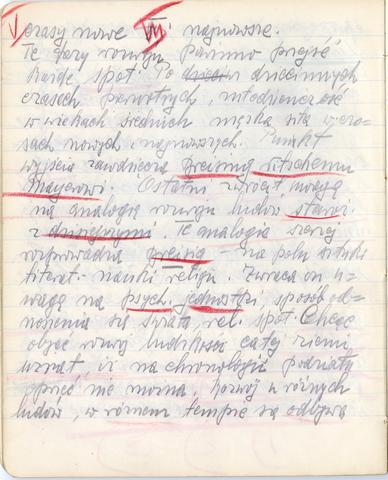 V czasy nowe VI i najnowsze.
Te fazy rozwoju powinno przejść
każde społ. Po dziecinnych
czasach pierwotnych, młodzieńczość
w wiekach średnich męska siła w cza-
sach nowych i najnowszych. Punkt
wyjścia zawdzięcza
Mayerowi. Ostatni zwrócił uwagę
na analogię rozwoju ludów staroż.
z dzisiejszymi. Tę analogię szerzej
rozprowadza Breisig - na polu sztuki
literat. nauki religii. Zwraca on u-
wagę na psych. jednostki, sposób od-
noszenia się świata, rel. społ. Chcąc
objąć rozwój ludzkości całej ziemi
uznał, iż na chronologii podziału
oprzeć nie można, rozwój u różnych
ludów, w różnem tempie się odbywa